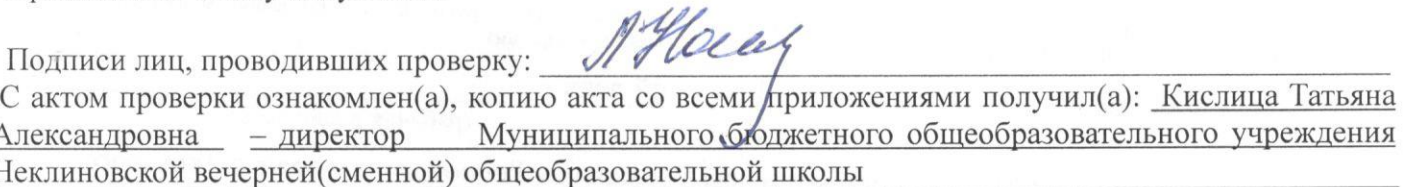 Подписи лиц, проводивших проверку:
С актом проверки ознакомлен(а), копию акта со всеми приложениями получил(а): Кислица Татьяна
Александровна – директор Муниципального бюджетного общеобразовательного учреждения
Неклиновской вечерней(сменной) общеобразовательной школы